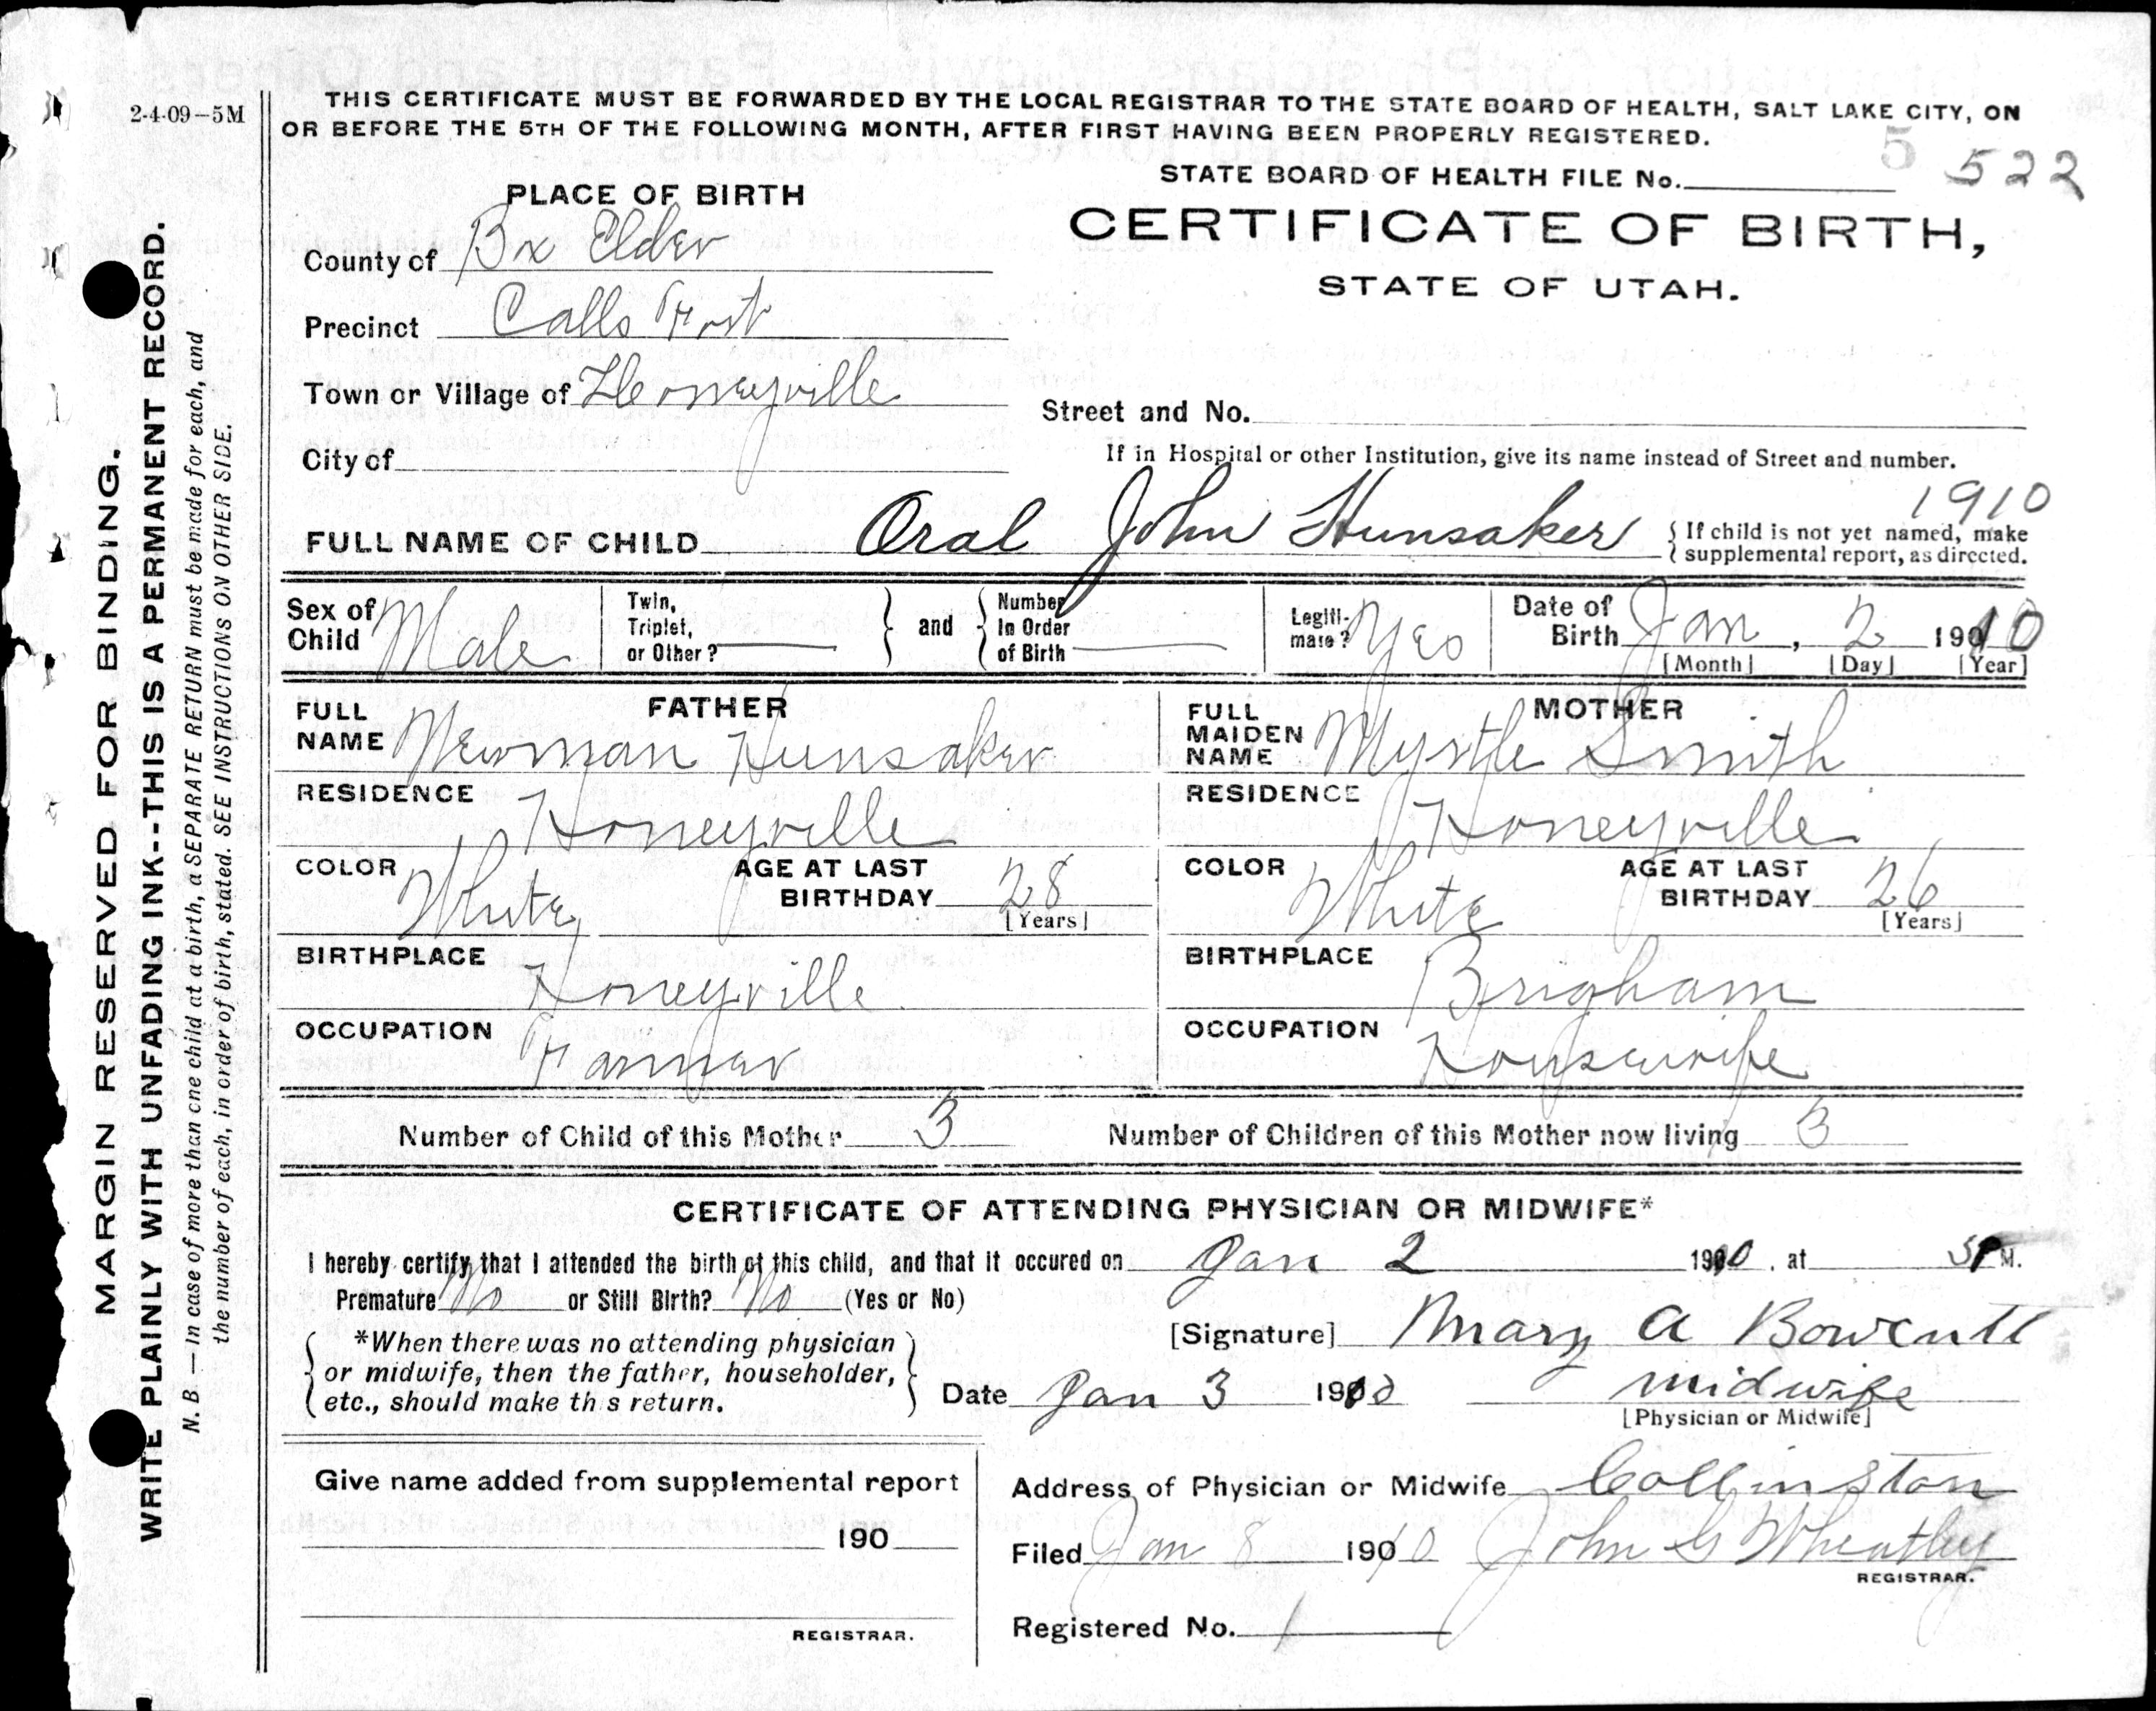 2-4-09-5M
THIS CERTIFICATE MUST BE FORWARDED BY THE LOCAL REGISTRAR TO THE STATE BOARD OF HEALTH, SALT LAKE CITY, ON
OR BEFORE THE 5TH OF THE FOLLOWING MONTH, AFTER FIRST HAVING BEEN PROPERLY REGISTERED.
STATE BOARD OF HEALTH FILE No. 5 522
CERTIFICATE OF BIRTH,
STATE OF UTAH.
PLACE OF BIRTH
County of Bx Elder
Precinct Calls Fort
Town or Village of Honeyville
Street and No.
City of
If in Hospital or other Institution, give its name instead of Street and number.
1910
FULL NAME OF CHILD Oral John Hunsaker { If child is not yet named, make
supplemental report, as directed.
Sex of Child Male Twin, Triplet, or Other? and Number In Order of Birth Legiti-mate? Yes Date of Birth Jan, 2 1910
[Month] [Day] [Year]
FATHER
FULL NAME Newman Hunsaker
RESIDENCE Honeyville
COLOR White AGE AT LAST BIRTHDAY 28
[Years]
BIRTHPLACE Honeyville
OCCUPATION Farmer
MOTHER
FULL MAIDEN NAME Myrtle Smith
RESIDENCE Honeyville
COLOR White AGE AT LAST BIRTHDAY 26
[Years]
BIRTHPLACE Brigham
OCCUPATION Housewife
Number of Child of this Mother 3 Number of Children of this Mother now living 3
CERTIFICATE OF ATTENDING PHYSICIAN OR MIDWIFE*
I hereby certify that I attended the birth of this child, and that it occured on Jan 2 1910, at 5 P M.
Premature No or Still Birth? No (Yes or No)
*When there was no attending physician
or midwife, then the father, householder,
etc., should make th s return.
[Signature] Mary A Bowcutt
Date Jan 3 1910 midwife
[Physician or Midwife]
Give name added from supplemental report
190
REGISTRAR.
Address of Physician or Midwife Collinston
Filed Jan 8 1910 John G Wheatley
REGISTRAR.
Registered No. 1
MARGIN RESERVED FOR BINDING.
WRITE PLAINLY WITH UNFADING INK--THIS IS A PERMANENT RECORD.
N. B.—In case of more than one child at a birth, a SEPARATE RETURN must be made for each, and
the number of each, in order of birth, stated. SEE INSTRUCTIONS ON OTHER SIDE.